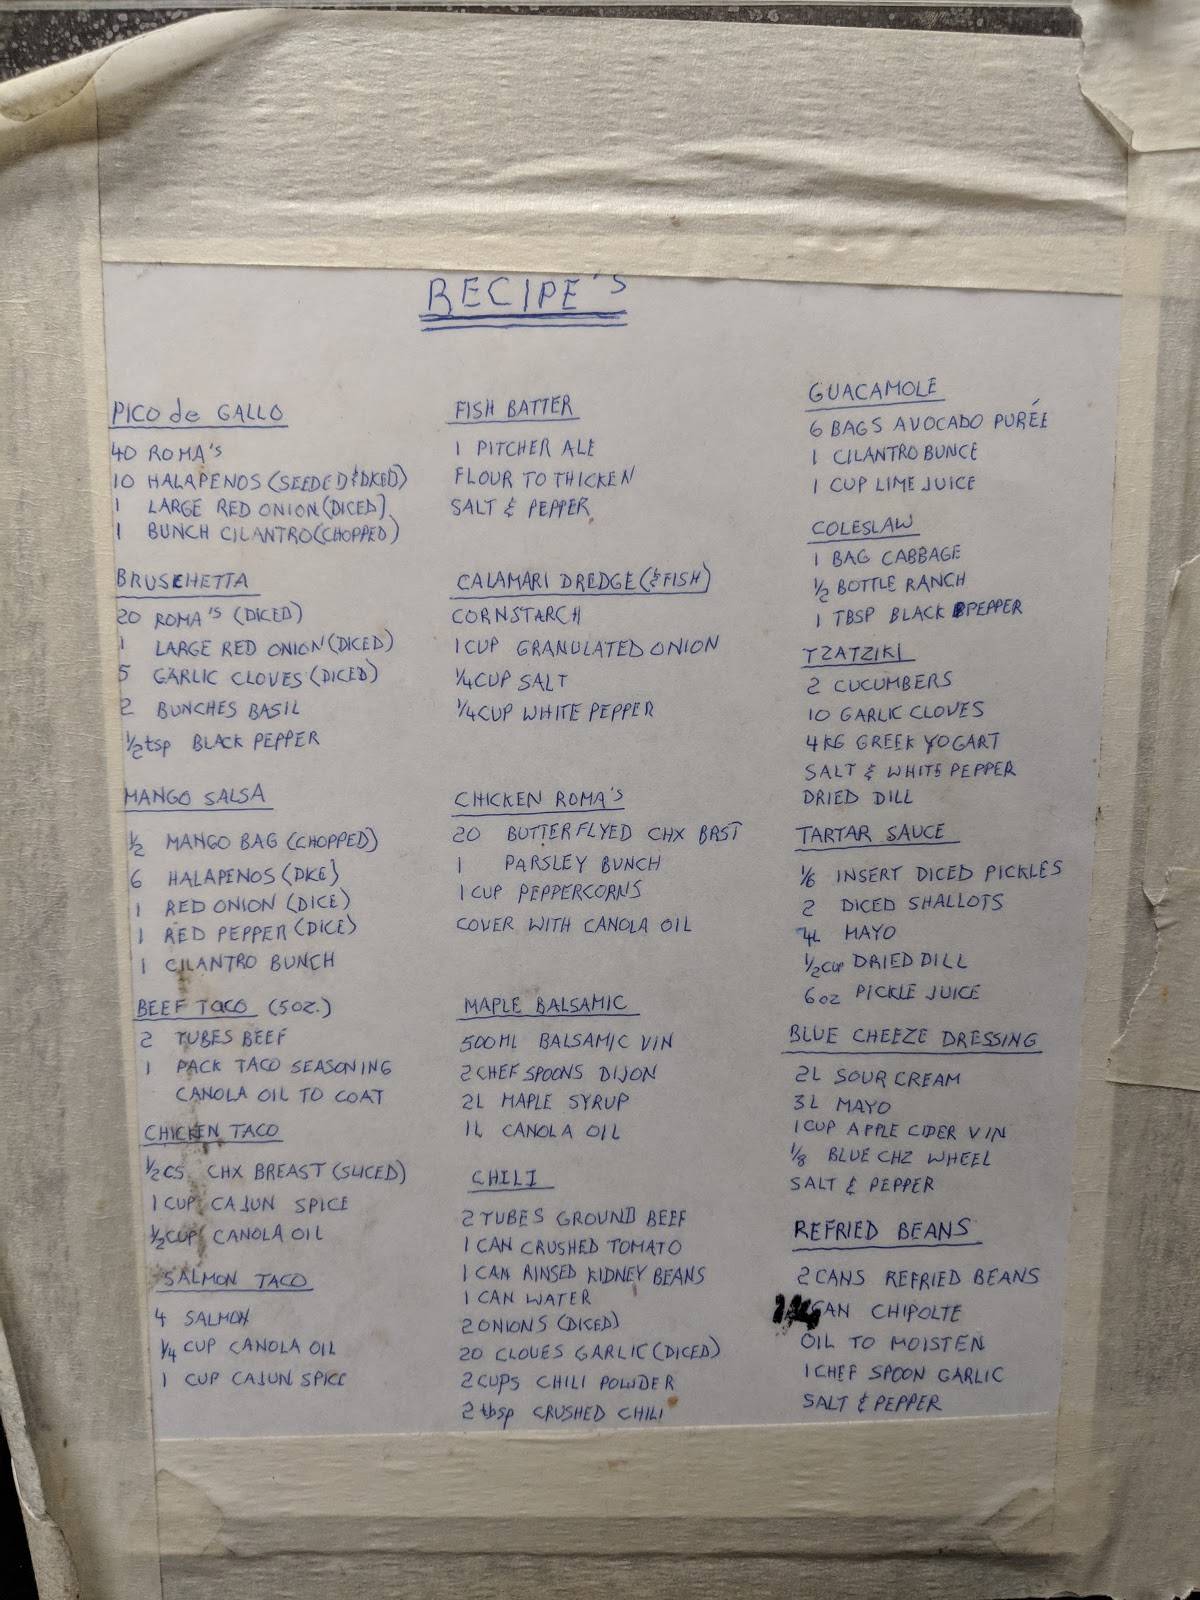 RECIPE'S
PICO de GALLO
40 ROMA'S
10 HALAPENOS (SEEDED & DICED)
1 LARGE RED ONION (DICED)
1 BUNCH CILANTRO (CHOPPED)
BRUSCHETTA
20 ROMA'S (DICED)
1 LARGE RED ONION (DICED)
5 GARLIC CLOVES (DICED)
2 BUNCHES BASIL
1/2 tsp BLACK PEPPER
MANGO SALSA
1/2 MANGO BAG (CHOPPED)
6 HALAPENOS (DICE)
1 RED ONION (DICE)
1 RED PEPPER (DICE)
1 CILANTRO BUNCH
BEEF TACO (5oz.)
2 TUBES BEEF
1 PACK TACO SEASONING
CANOLA OIL TO COAT
CHICKEN TACO
1/2 CS. CHX BREAST (SLICED)
1 CUP CAJUN SPICE
1/2 CUP CANOLA OIL
SALMON TACO
4 SALMON
1/4 CUP CANOLA OIL
1 CUP CAJUN SPICE
FISH BATTER
1 PITCHER ALE
FLOUR TO THICKEN
SALT & PEPPER
CALAMARI DREDGE (& FISH)
CORNSTARCH
1 CUP GRANULATED ONION
1/4 CUP SALT
1/4 CUP WHITE PEPPER
CHICKEN ROMA'S
20 BUTTERFLYED CHX BRST
1 PARSLEY BUNCH
1 CUP PEPPERCORNS
COVER WITH CANOLA OIL
MAPLE BALSAMIC
500ML BALSAMIC VIN
2 CHEF SPOONS DIJON
2L MAPLE SYRUP
1L CANOLA OIL
CHILI
2 TUBES GROUND BEEF
1 CAN CRUSHED TOMATO
1 CAN RINSED KIDNEY BEANS
1 CAN WATER
2 ONIONS (DICED)
20 CLOVES GARLIC (DICED)
2 CUPS CHILI POWDER
2 tbsp CRUSHED CHILI
GUACAMOLE
6 BAGS AVOCADO PURÉE
1 CILANTRO BUNCE
1 CUP LIME JUICE
COLESLAW
1 BAG CABBAGE
1/2 BOTTLE RANCH
1 TBSP BLACK PEPPER
TZATZIKI
2 CUCUMBERS
10 GARLIC CLOVES
4KG GREEK YOGART
SALT & WHITE PEPPER
DRIED DILL
TARTAR SAUCE
1/6 INSERT DICED PICKLES
2 DICED SHALLOTS
4L MAYO
1/2 CUP DRIED DILL
6oz PICKLE JUICE
BLUE CHEEZE DRESSING
2L SOUR CREAM
3L MAYO
1 CUP APPLE CIDER VIN
1/8 BLUE CHZ WHEEL
SALT & PEPPER
REFRIED BEANS
2 CANS REFRIED BEANS
CAN CHIPOLTE
OIL TO MOISTEN
1 CHEF SPOON GARLIC
SALT & PEPPER